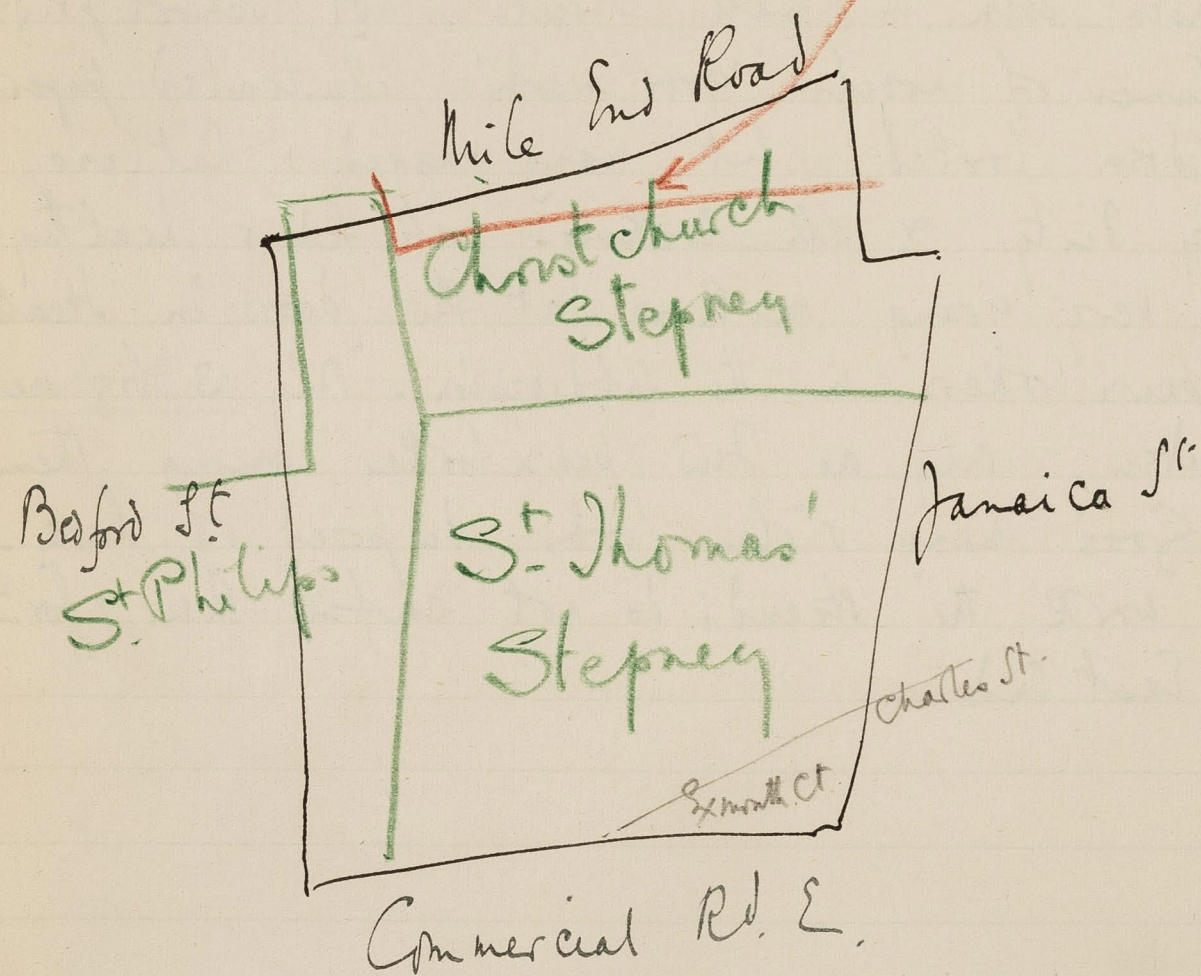 Mile End Road
Christ Church
Stepney
Bedford St.
Jamaica St
St. Philips
St. Thomas'
Stepney
Charles St.
Exmouth Ct.
Commercial Rd. E.